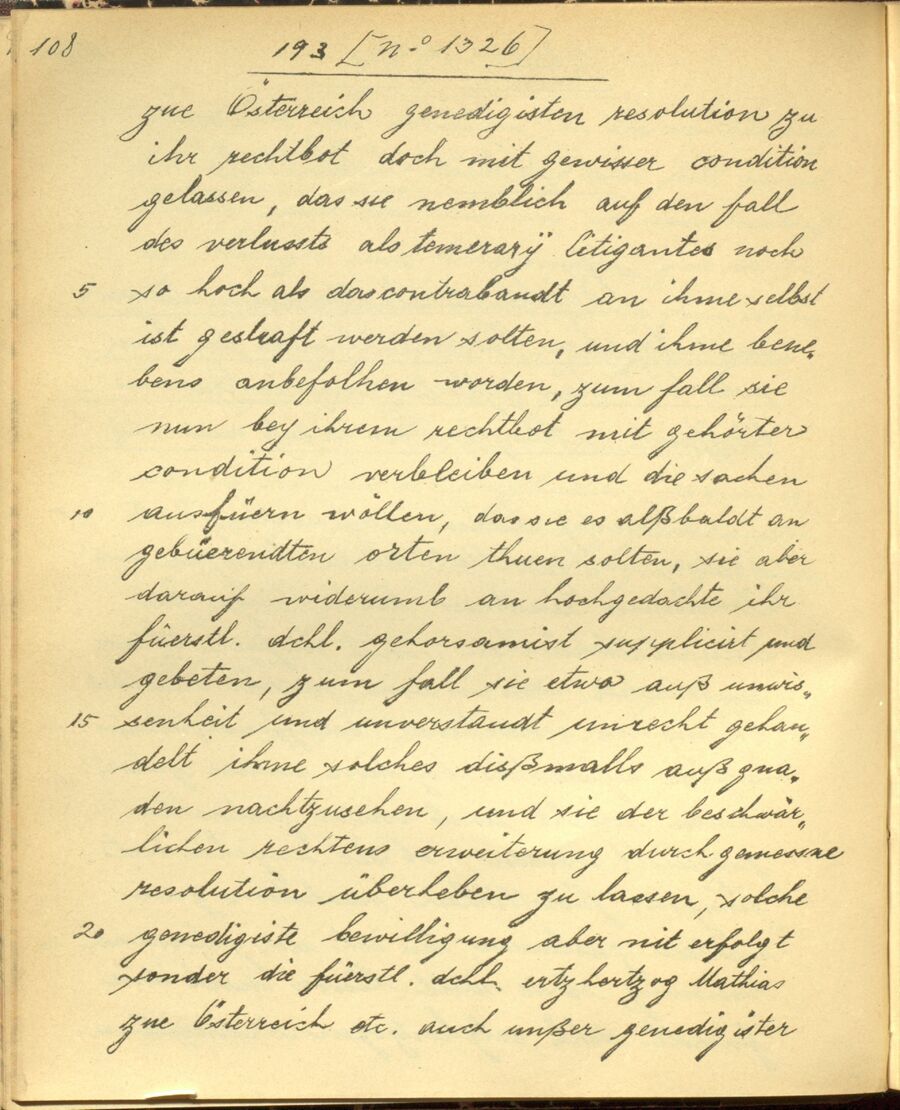 108
193 [n.o 1326]
zue Österreich genedigisten resolution zu
ihr rechtbot doch mit gewisser condition
gelassen, das sie nemblich auf den fall
des verlussts als temerarÿ litigantes noch
5 so hoch als das contrabandt an ihme selbst
ist gestraft werden solten, und ihme bene„
bens anbefolhen worden, zum fall sie
nun bey ihrem rechtbot mit gehörter
condition verbleiben und die sachen
10 ausfüern wöllen, das sie es alßbaldt an
gebüerendten orten thuen solten, sie aber
darauf widerumb an hochgedachte ihr
füerstl. dchl. gehorsamist supplicirt und
gebeten, zum fall sie etwo auß unwis„
15 senheit und unverstandt unrecht gehan„
delt ihme solches dißmalls auß gna„
den nachtzusehen, und sie der beschwär„
lichen rechtens erweiterung durch gemessne
resolution überheben zu lassen, solche
20 genedigiste bewilligung aber nit erfolgt
sonder die füerstl. dchl. ertzhertzog Mathias
zue Österreich etc. auch unßer genedigister